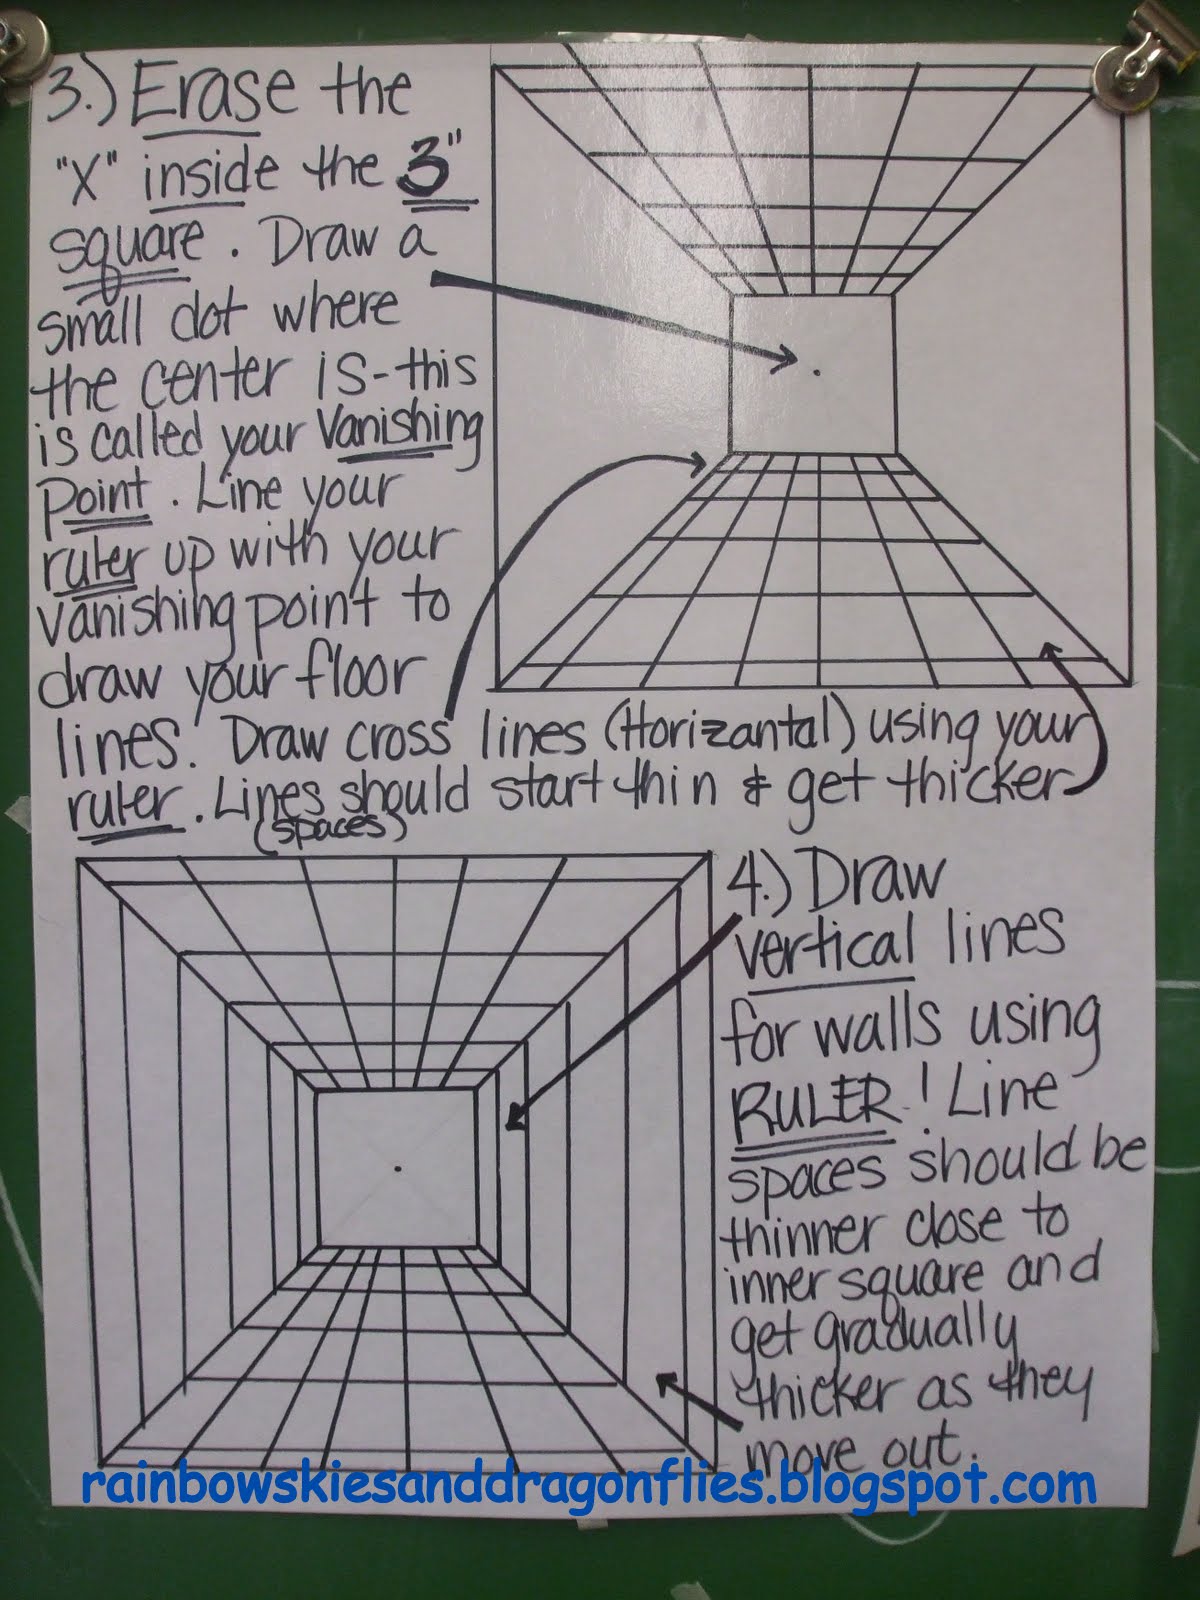 3.) Erase the
"X" inside the 3"
square. Draw a
small dot where
the center is - this
is called your Vanishing
Point. Line your
ruler up with your
vanishing point to
draw your floor
lines. Draw cross lines (Horizantal) using your
ruler. Lines should start thin & get thicker
(spaces)
4.) Draw
vertical lines
for walls using
RULER! Line
spaces should be
thinner close to
inner square and
get gradually
thicker as they
move out.
rainbowskiesanddragonflies.blogspot.com